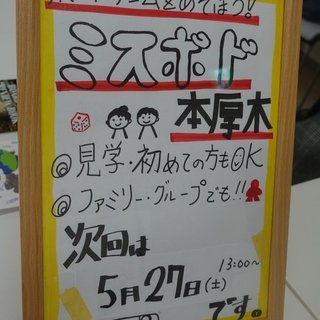 ボードゲームをあそぼう!
ミスボド
本厚木
◎見学・初めての方もOK
◎ファミリー・グループでも!!
次回は
13:00~
5月27日(土)
です。